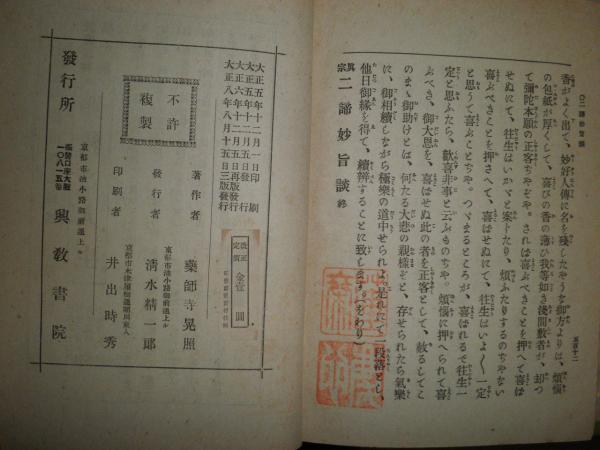 〇二諦妙旨談
五百十二
香がよく出て、妙好人傳に名を殘したやうな御方よりは、煩惱
の包紙が厚くして、喜びの香の薄ひ我等如き淺間敷者が、却つ
て彌陀本願の正客ぢやぞや。されは喜ぶべきことを押へて喜は
せぬにて、往生はいかゞと案トたり、煩ふたりするのぢやない
喜ぶべきことを押さへて、喜はせぬにて、往生はいよ〱一定
と思うて喜ぶことぢや。つゞまるところが、喜ばれるそ往生一
定と思ふたら、歡喜非事と云ふものぢや。煩惱に押へられて喜
ぶべき、御大恩を、喜はせぬ此の者を正客として、赦るしてこ
のまゝ御助けとは、何たる大悲の親樣ぞと、存せられたら氣樂
に、御相續しながら極樂の道中せられよ。是れにて一段落とし、
他日御緣を得て、續辨することに致します。(をわり)
眞宗 二諦妙旨談 終
大正五年十二月一日印刷
大正五年十二月五日發行
大正六年十二月十五日再版發行
大正八年八月十五日三版發行
改正定價 金壹圓
不許複製
著作者 藥師寺晃照
京都市油小路御前通上ル
發行者 淸水精一郎
印刷者 井出時秀
發行所
京都市油小路御前通上ル
興教書院
振替口座大阪
一〇八一五番